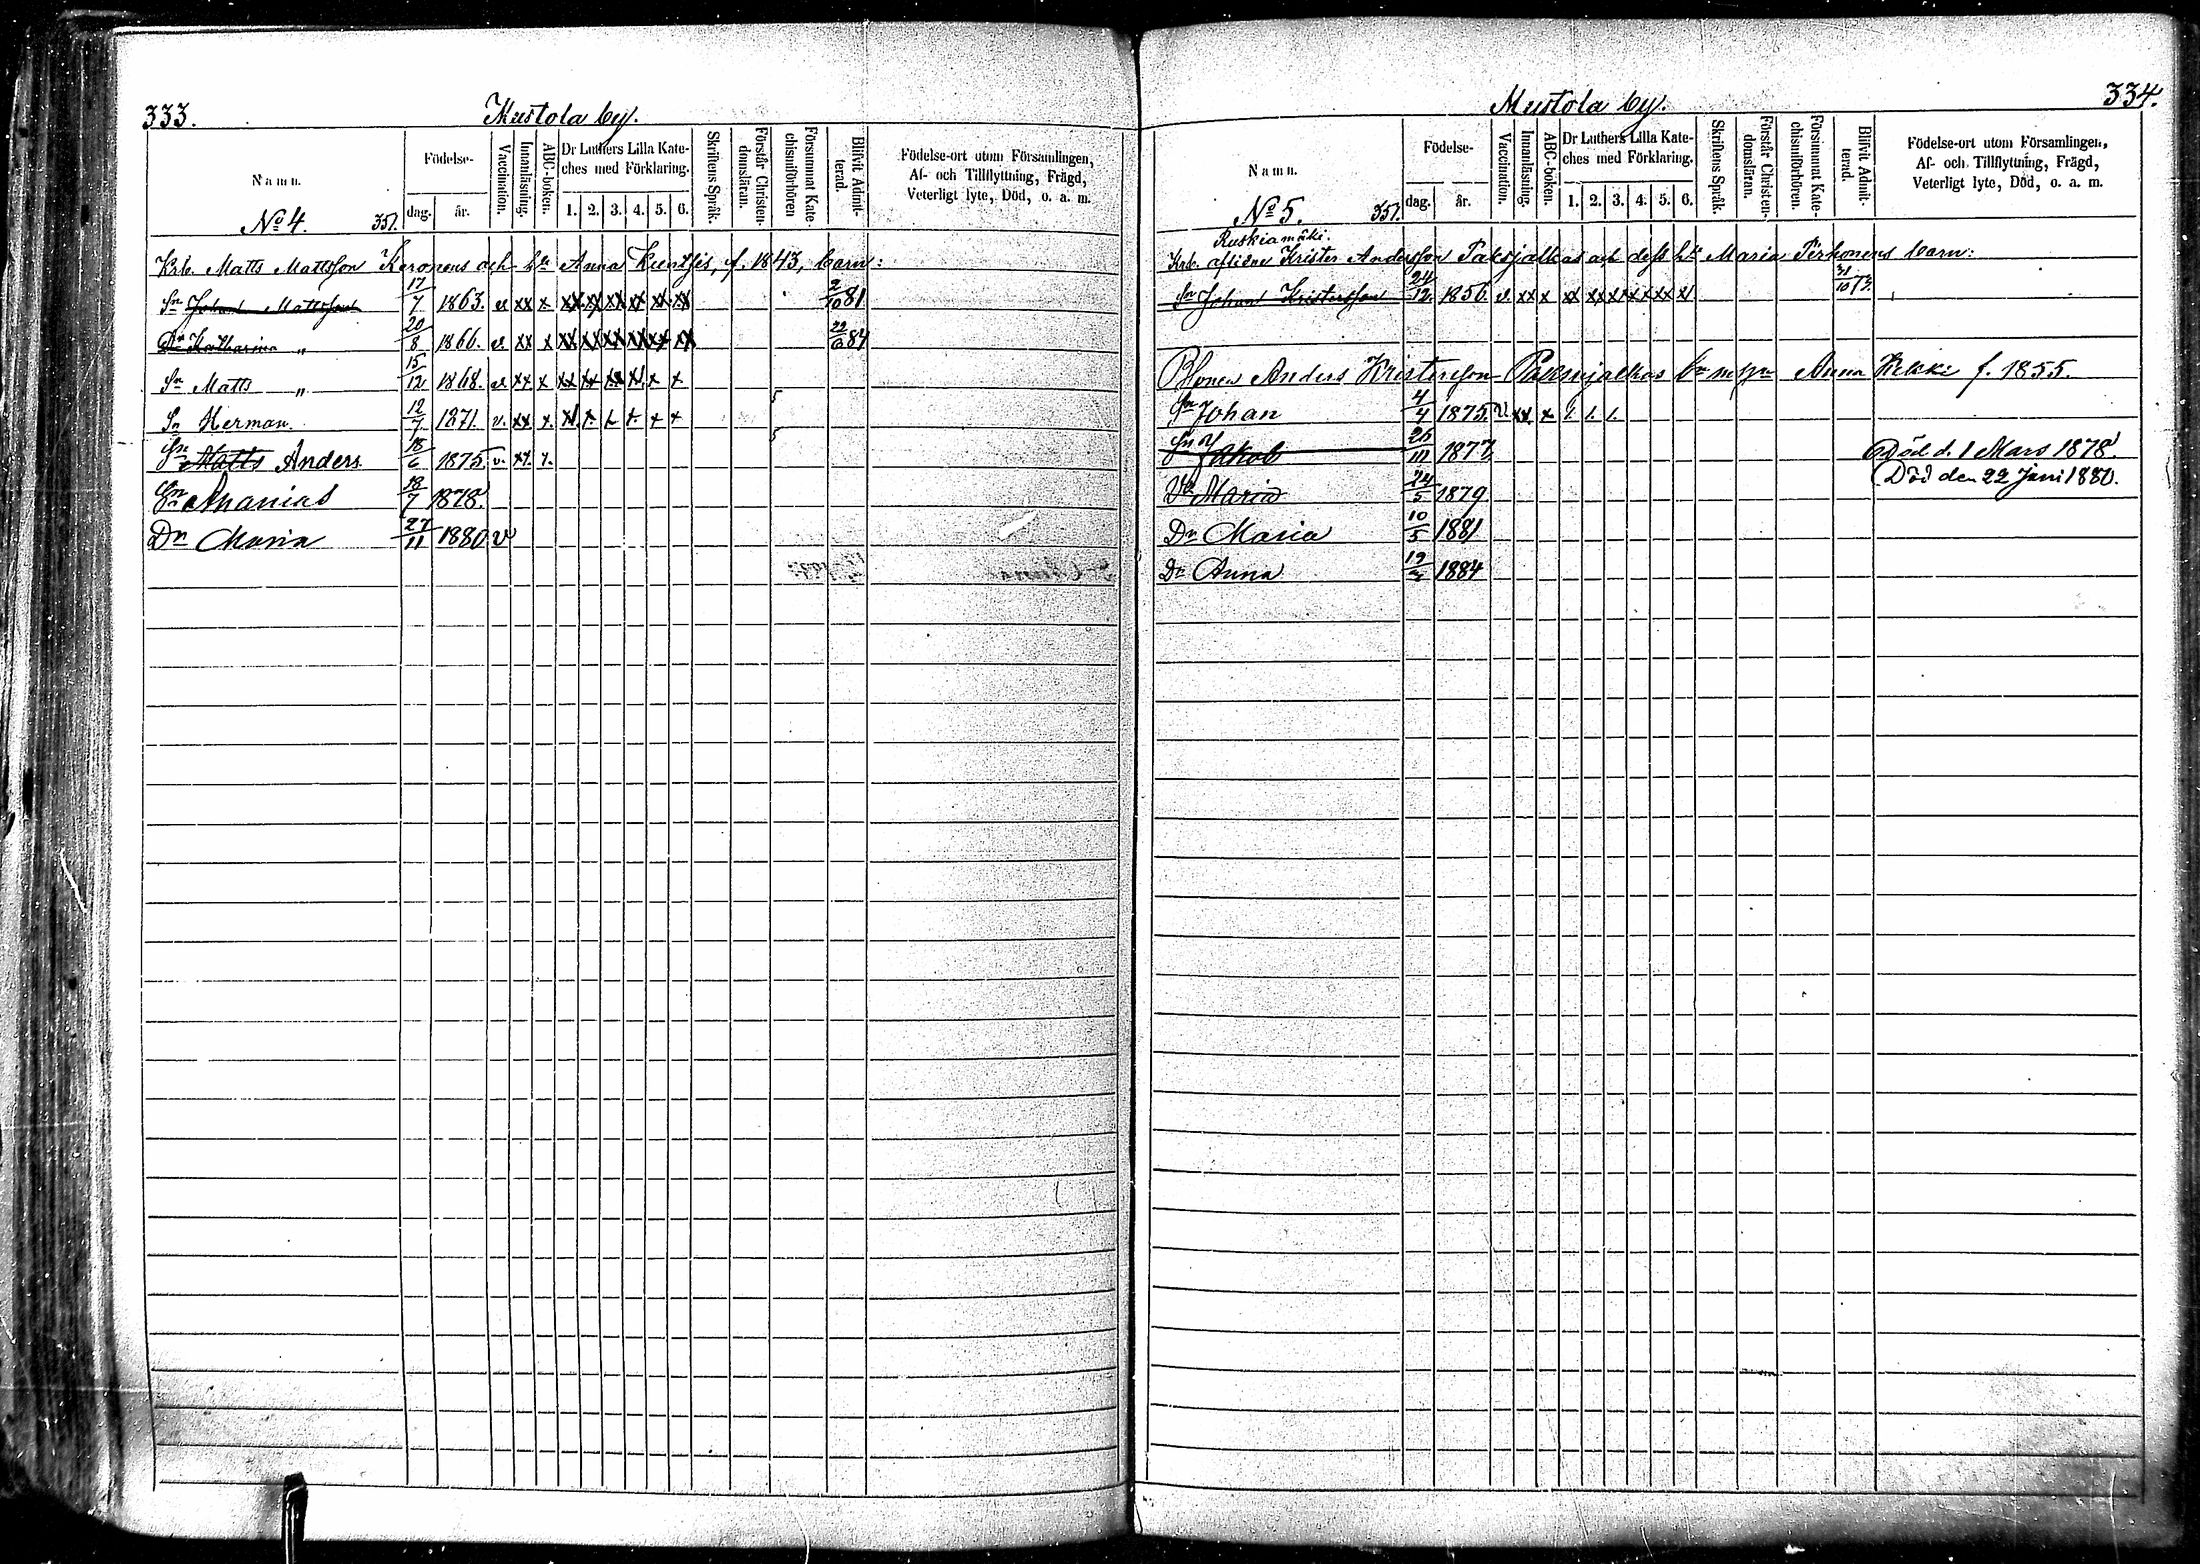 333.
Mustola by.
Namn.
Födelse-
dag. år.
Vaccination.
Innanläsning.
ABC-boken.
Dr Luthers Lilla Kate-
ches med Förklaring.
1. 2. 3. 4. 5. 6.
Skriftens Språk.
Förstår Christen-
domsläran.
Försummat Kate-
chismiförhören
Blifvit Admit-
terad.
Födelse-ort utom Församlingen,
Af- och Tillflyttning, Frägd,
Veterligt lyte, Död, o. a. m.
No 4. 351.
Krb. Matts Mattsson Keronens och h:u Anna f. 1843, barn:
Sn Johan Mattsson 17/7 1863. v xx x xx xx xx xx xx xx 2/10 81
Dr Katharina „ 20/8 1866. v xx x xx xx xx xx xx xx 22/6 84
Sn Matts „ 15/12 1868. v xx x xx xx xx x x x
Sn Herman. 12/7 1871. v. xx x. x x x x x x 5
Sn Matts Anders. 18/6 1875. v. xx x. 5
Sn Ananias 18/7 1878.
Dr Maria 27/11 1880 v
334.
Mustola by.
Namn.
Födelse-
dag. år.
Vaccination.
Innanläsning.
ABC-boken.
Dr Luthers Lilla Kate-
ches med Förklaring.
1. 2. 3. 4. 5. 6.
Skriftens Språk.
Förstår Christen-
domsläran.
Försummat Kate-
chismiförhören.
Blifvit Admit-
terad.
Födelse-ort utom Församlingen,
Af- och Tillflyttning, Frägd,
Veterligt lyte, Död, o. a. m.
No 5. 351.
Ruskiamäki.
Krb. aflidne Krister Andersson Paksjalkas och dess h:u Maria Pirhonens barn:
Sn Johan Kristersson 24/12 1856. v. xx x xx xx xx xx xx x 31/10 73.
Anders Kristersson Paksujalkas Anna f. 1855.
Sn Johan 4/4 1875. v. xx x 1. 1. 1.
Sn Jakob 26/III 1877 Död d. 1 Mars 1878.
Dr Maria 24/5 1879 Död den 22 Juni 1880.
Dr Maria 10/5 1881
Dr Anna 19/3 1884